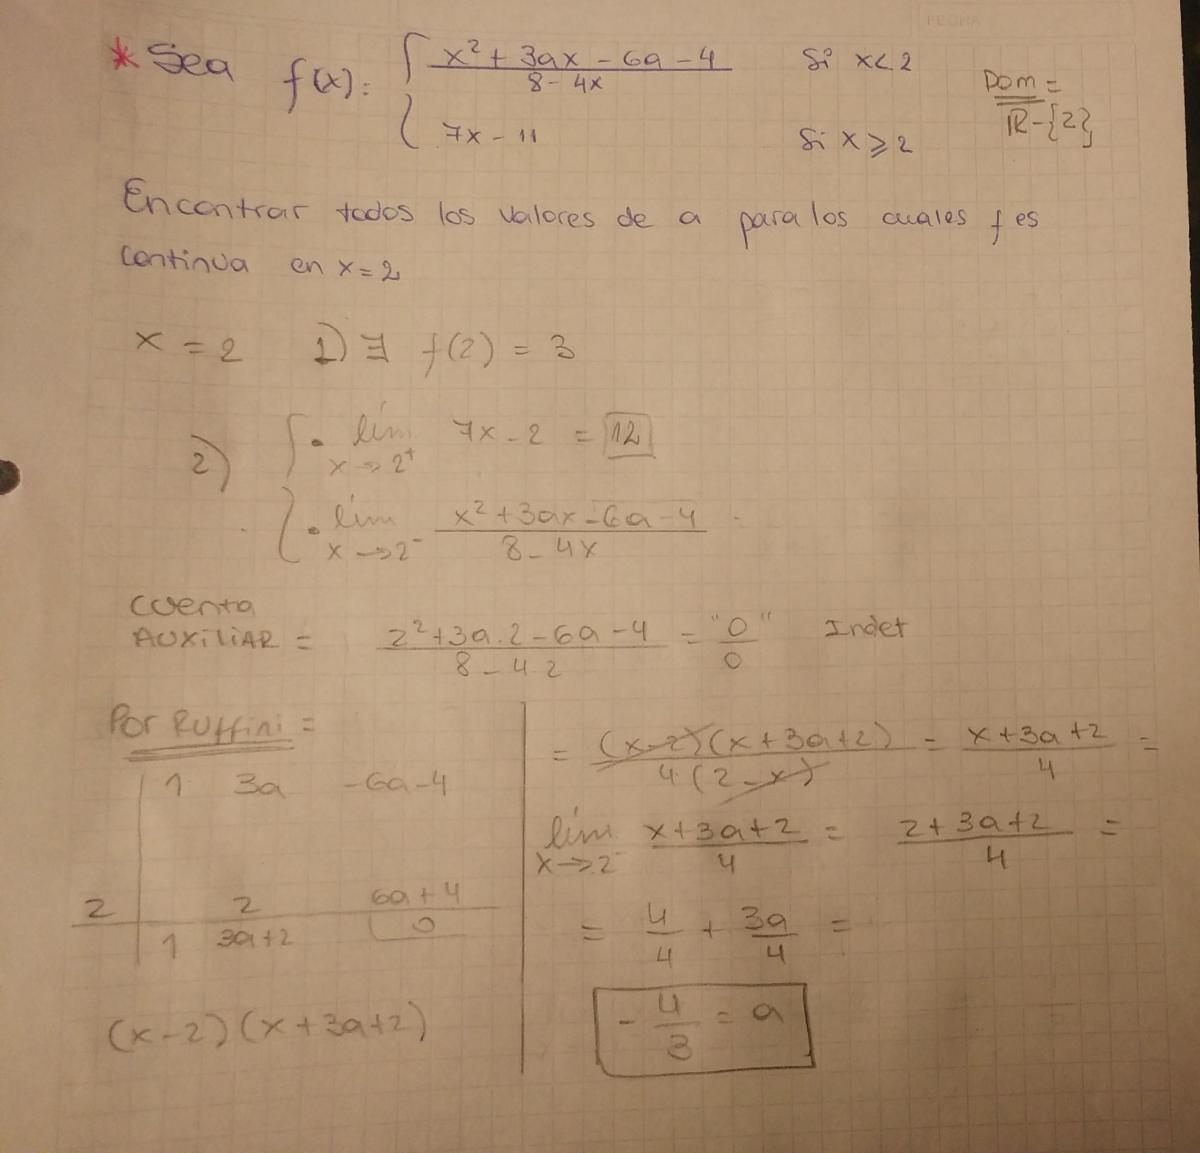 FECHA
* Sea f(x): { x² + 3ax - 6a - 4 / 8 - 4x Si x < 2
7x - 11 Si x ⩾ 2
Dom =
ℝ - {2}
Encontrar todos los valores de a para los cuales f es
continua en x = 2
x = 2 1) ∃ f(2) = 3
2) { • lím x→2⁺ 7x - 2 = 12
• lím x→2⁻ x² + 3ax - 6a - 4 / 8 - 4x
CUENTA
AUXILIAR = 2² + 3a.2 - 6a - 4 / 8 - 4.2 = "0"/0 Indet
Por Ruffini =
1 3a -6a-4
2 2 6a+4
1 3a+2 0
(x-2) (x+3a+2)
= (x-2)(x+3a+2) / 4(2-x) = x+3a+2 / 4 =
lím x→2⁻ x+3a+2 / 4 = 2+3a+2 / 4 =
= 4/4 + 3a/4 =
- 4/3 = a